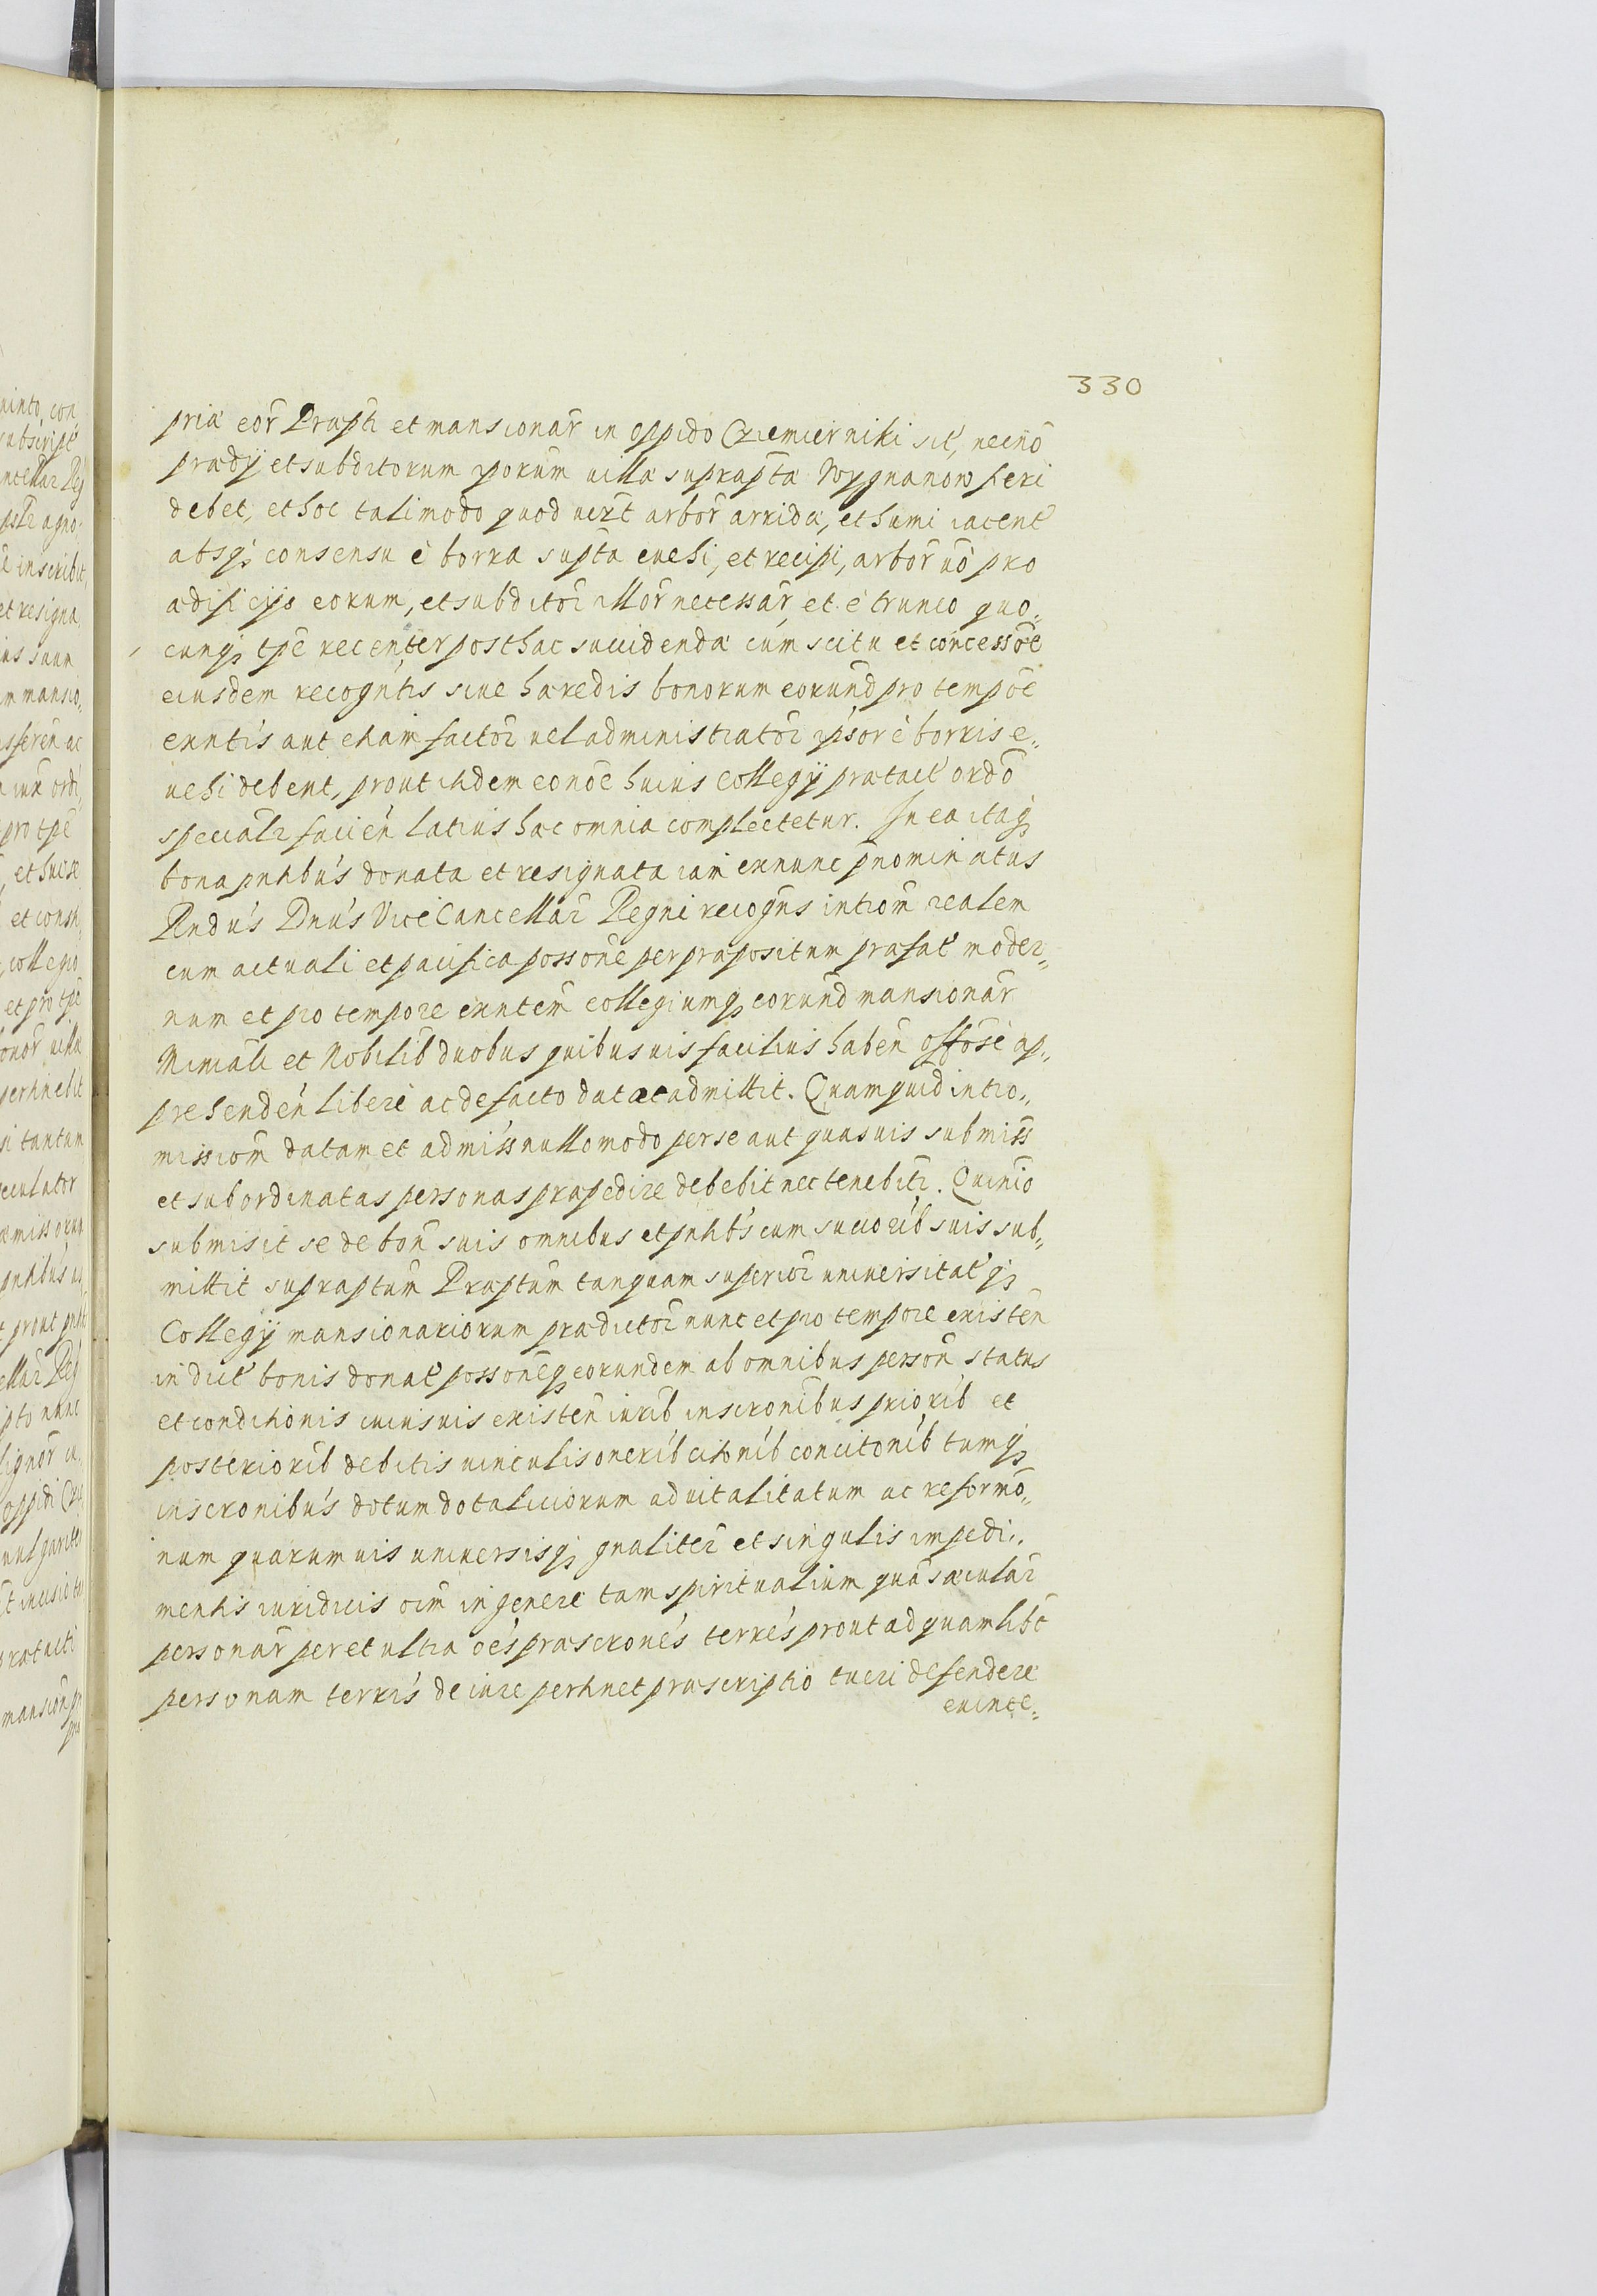 330
pria eor̄ Præpti et mansionar̄ in oppido Cziemierniki sit, necnō
prædÿ et subditorum ipsorum villa suprapta Wygnanow fieri
debet, et hoc tali modo quod ver̄t arbor̄ arrida, et humi iacent
absq₃ consensu è borra supta evehi, et recipi, arbor̄ uō pro
ædificijs eorum, et subditor̄ illor̄ necessar̄, et è trunco quo„
cunq₃ tpē recenter posthac succidenda cum scitu et concessōe
eiusdem recogntis siue hæredis bonorum eorund̄ pro tempōe
exntis aut etiam factor̄ vel administrator̄ ipsor̄ è borris e„
uehi debent, prout itidem eo noē huius Collegÿ prætact ordō
speciali facien̄ latius hæc omnia complectetur. In ea itaq₃
bona pntibus donata et resignata iam exnunc pnominatus
Rndus Dnus ViceCancellar̄ Regni recogns introm̄ realem
cum actuali et pacifica possone per præpositum præfat moder„
num et pro tempore exntem̄ collegiumq₃ eorund̄ mansionar̄
Mi̅riali et Nobilib duobus quibusuis facilius haben̄ offōse ap„
prehenden̄ libere ac de facto dat et admittit. Quam quid intro„
missiom̄ datam et admiss nullo modo per se aut quasuis submiss
et subordinatas personas præpedire debebit nec tenebitr. Quinio
submisit se de bon̄ suis omnibus et pntibs cum succorib suis sub„
mittit supraptum Præptum tanquam superior̄ universitat q₃
Collegÿ mansionariorum prædictor̄ nunc et pro tempore existen̄
in dict bonis donat possoneq₃ eorundem ab omnibus person̄ status
et conditionis cuiusuis existen̄ iurib inscronibus priorib et
posteriorib debitis vinculis onerib citonib concitonib tumq₃
inscronibus dotum dotaliciorum aduitalitatum ac reformo„
num quarumuis universisq₃ gnaliter et singulis impedi„
mentis iuridicis oim̄ in genere tam spiritualium quā sæcular̄
personar̄ per et ultra oēs præscrones terres prout ad quamlibt
personam terris de iure pertinet præscriptio tueri defendere
euince„